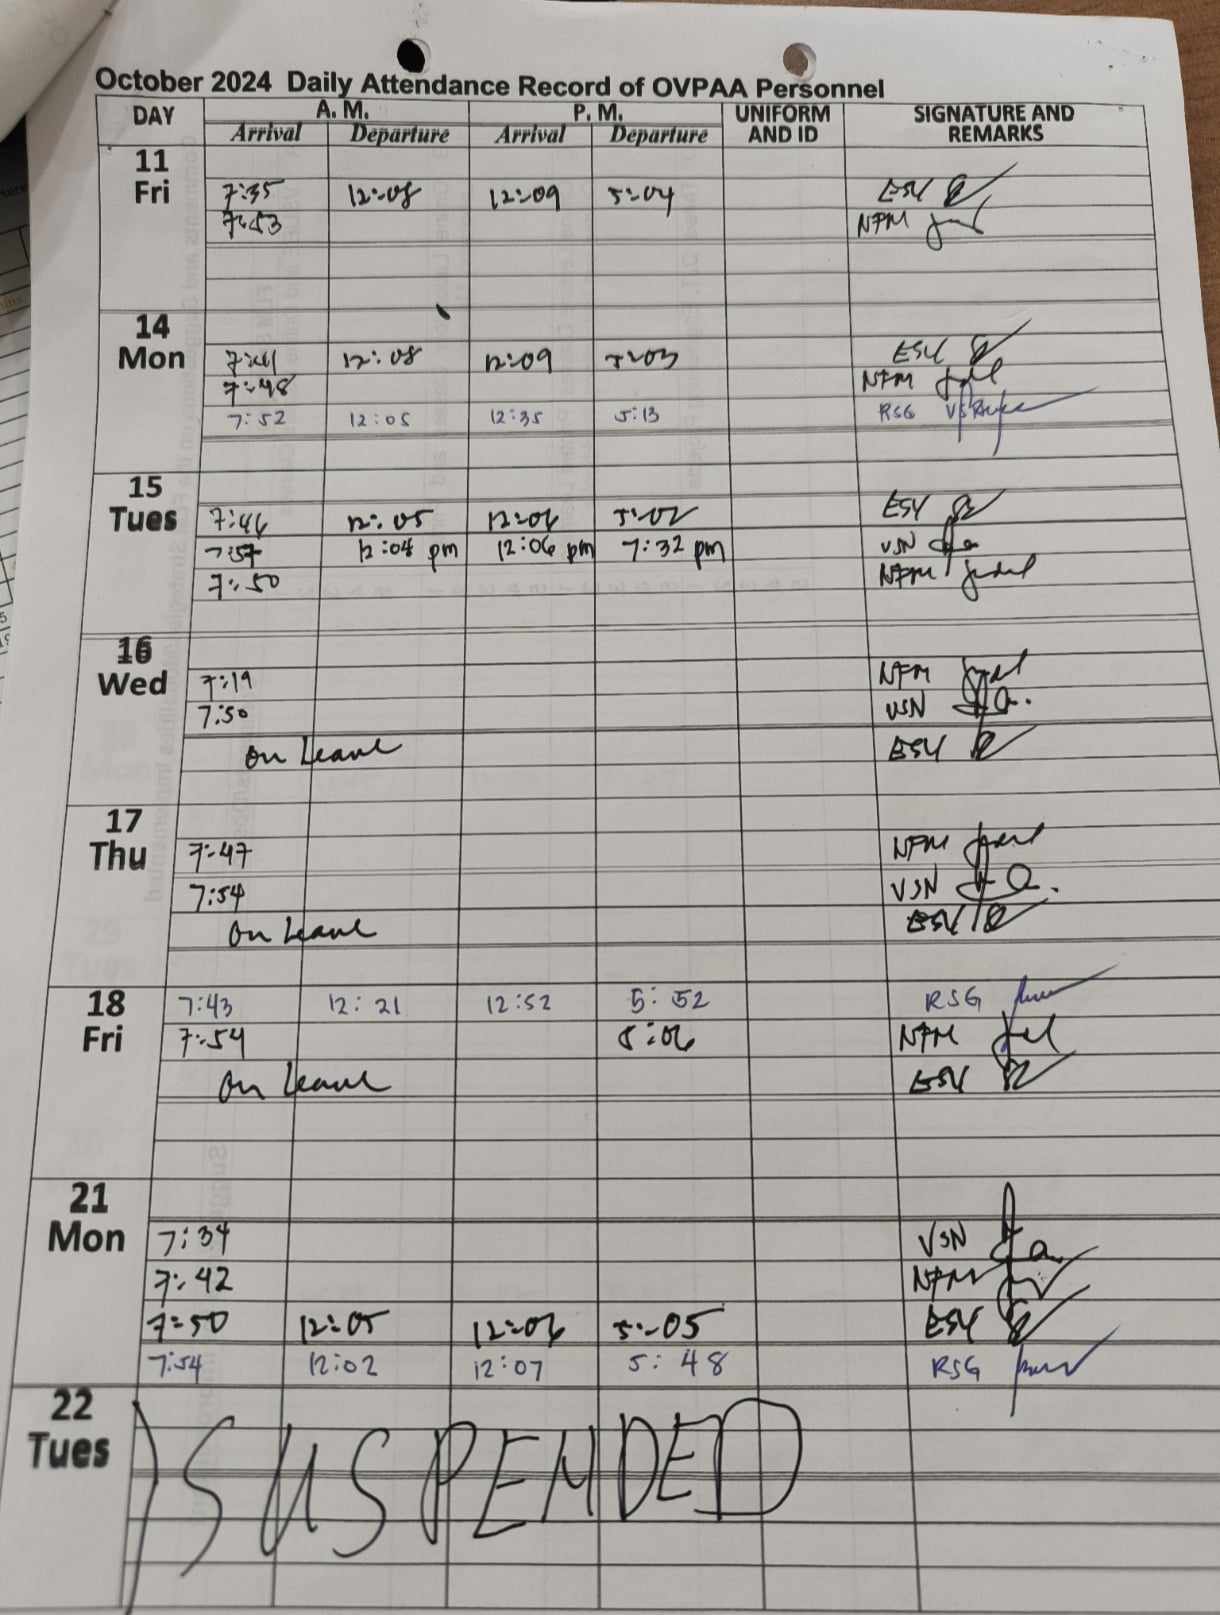 October 2024 Daily Attendance Record of OVPAA Personnel
DAY A. M. P. M. UNIFORM AND ID SIGNATURE AND REMARKS
Arrival Departure Arrival Departure
11 Fri
7:35 12:08 12:09 5:04 ESY
7:53 NPM
14 Mon
12:08 12:09 5:03 ESY
7:48 NPM
7:52 12:05 12:35 5:13 RSG
15 Tues
7:46 12:05 12:06 5:02 ESY
7:57 12:04 pm 12:06 pm 7:32 pm VSN
7:50 NPM
16 Wed
7:19 NPM
7:50 VSN
On Leave ESY
17 Thu
7:47 NPM
7:54 VSN
On Leave ESY
18 Fri
7:43 12:21 12:52 5:52 RSG
7:54 5:06 NPM
On Leave ESY
21 Mon
7:34 VSN
7:42 NPM
7:50 12:05 12:06 5:05 ESY
7:54 12:02 12:07 5:48 RSG
22 Tues
SUSPENDED